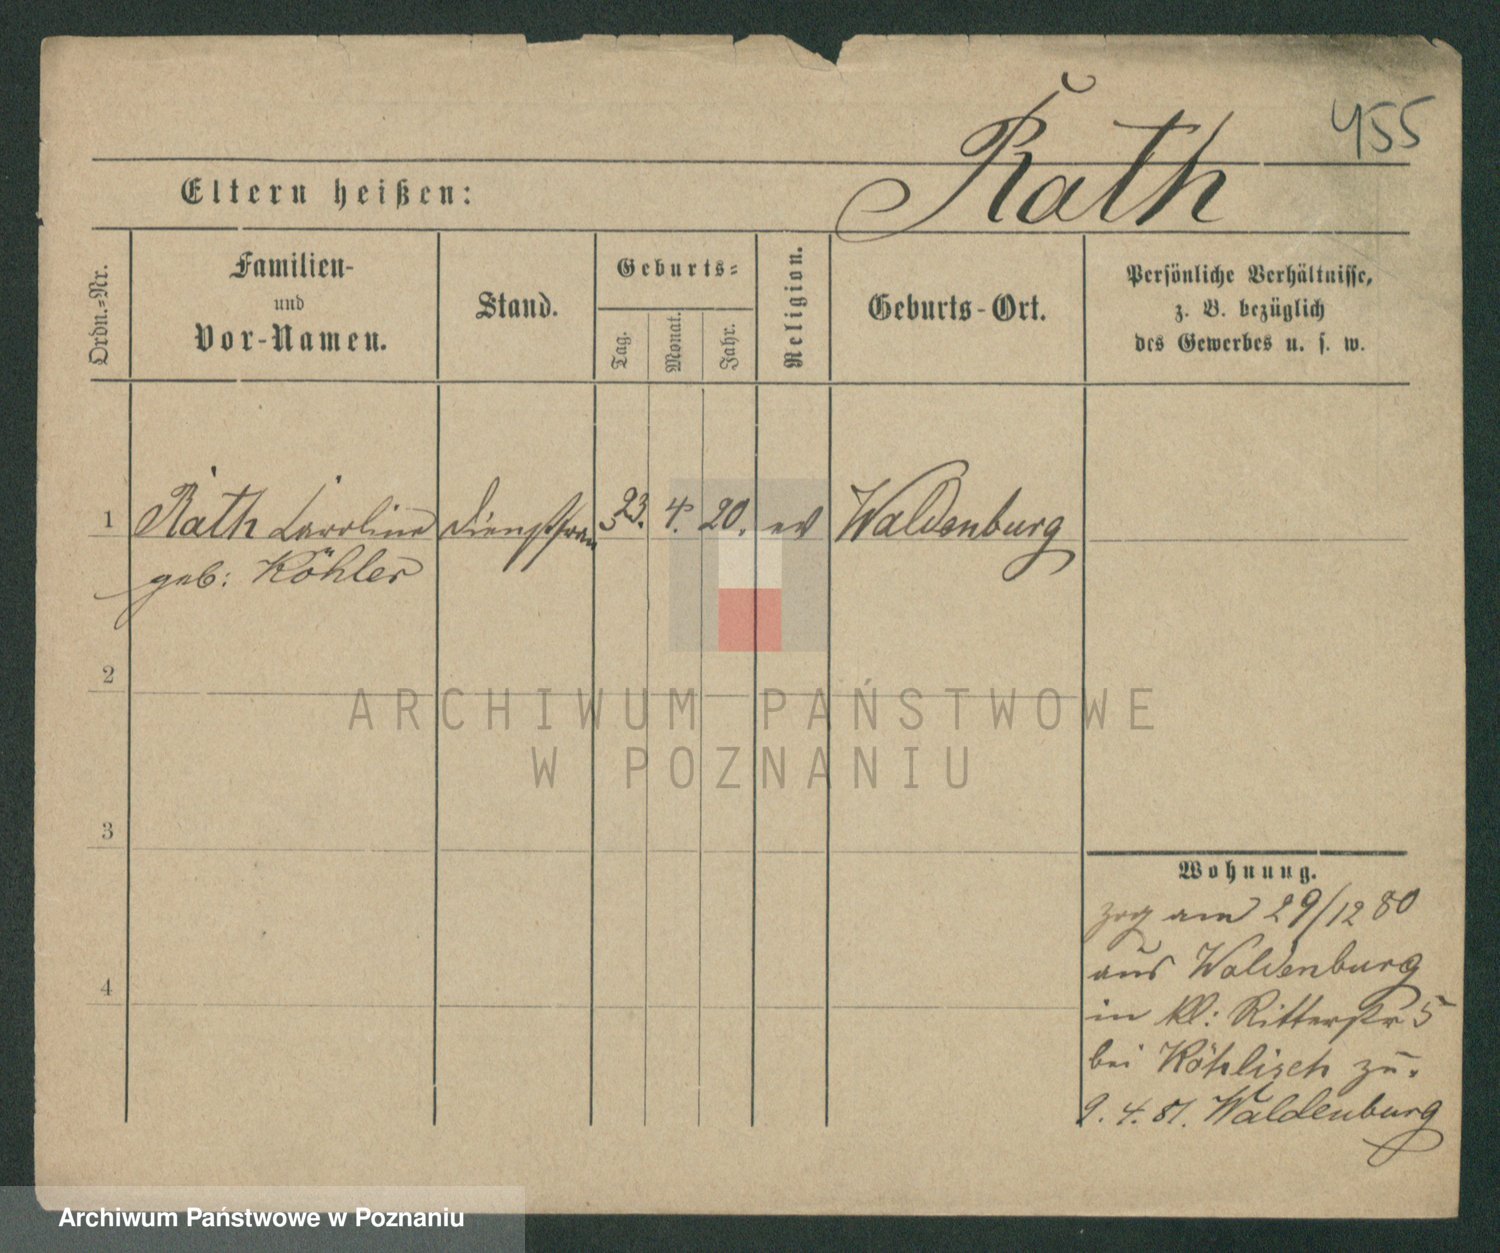 455
Rath
Eltern heißen:
Ordn.-Nr.
Familien-
und
Vor-Namen.
Stand.
Geburts-
Tag.
Monat.
Jahr.
Religion.
Geburts-Ort.
Persönliche Verhältnisse,
z. B. bezüglich
des Gewerbes u. s. w.
1
Rath Caroline
geb: Köhler
Dienstfrau
23.
4.
20.
ev
Waldenburg
2
3
4
Wohnung.
zog am 29/12 80
aus Waldenburg
in kl: Ritterstr 5
bei Köhlisch zu.
9. 4. 81. Waldenburg
ARCHIWUM PAŃSTWOWE
W POZNANIU
Archiwum Państwowe w Poznaniu